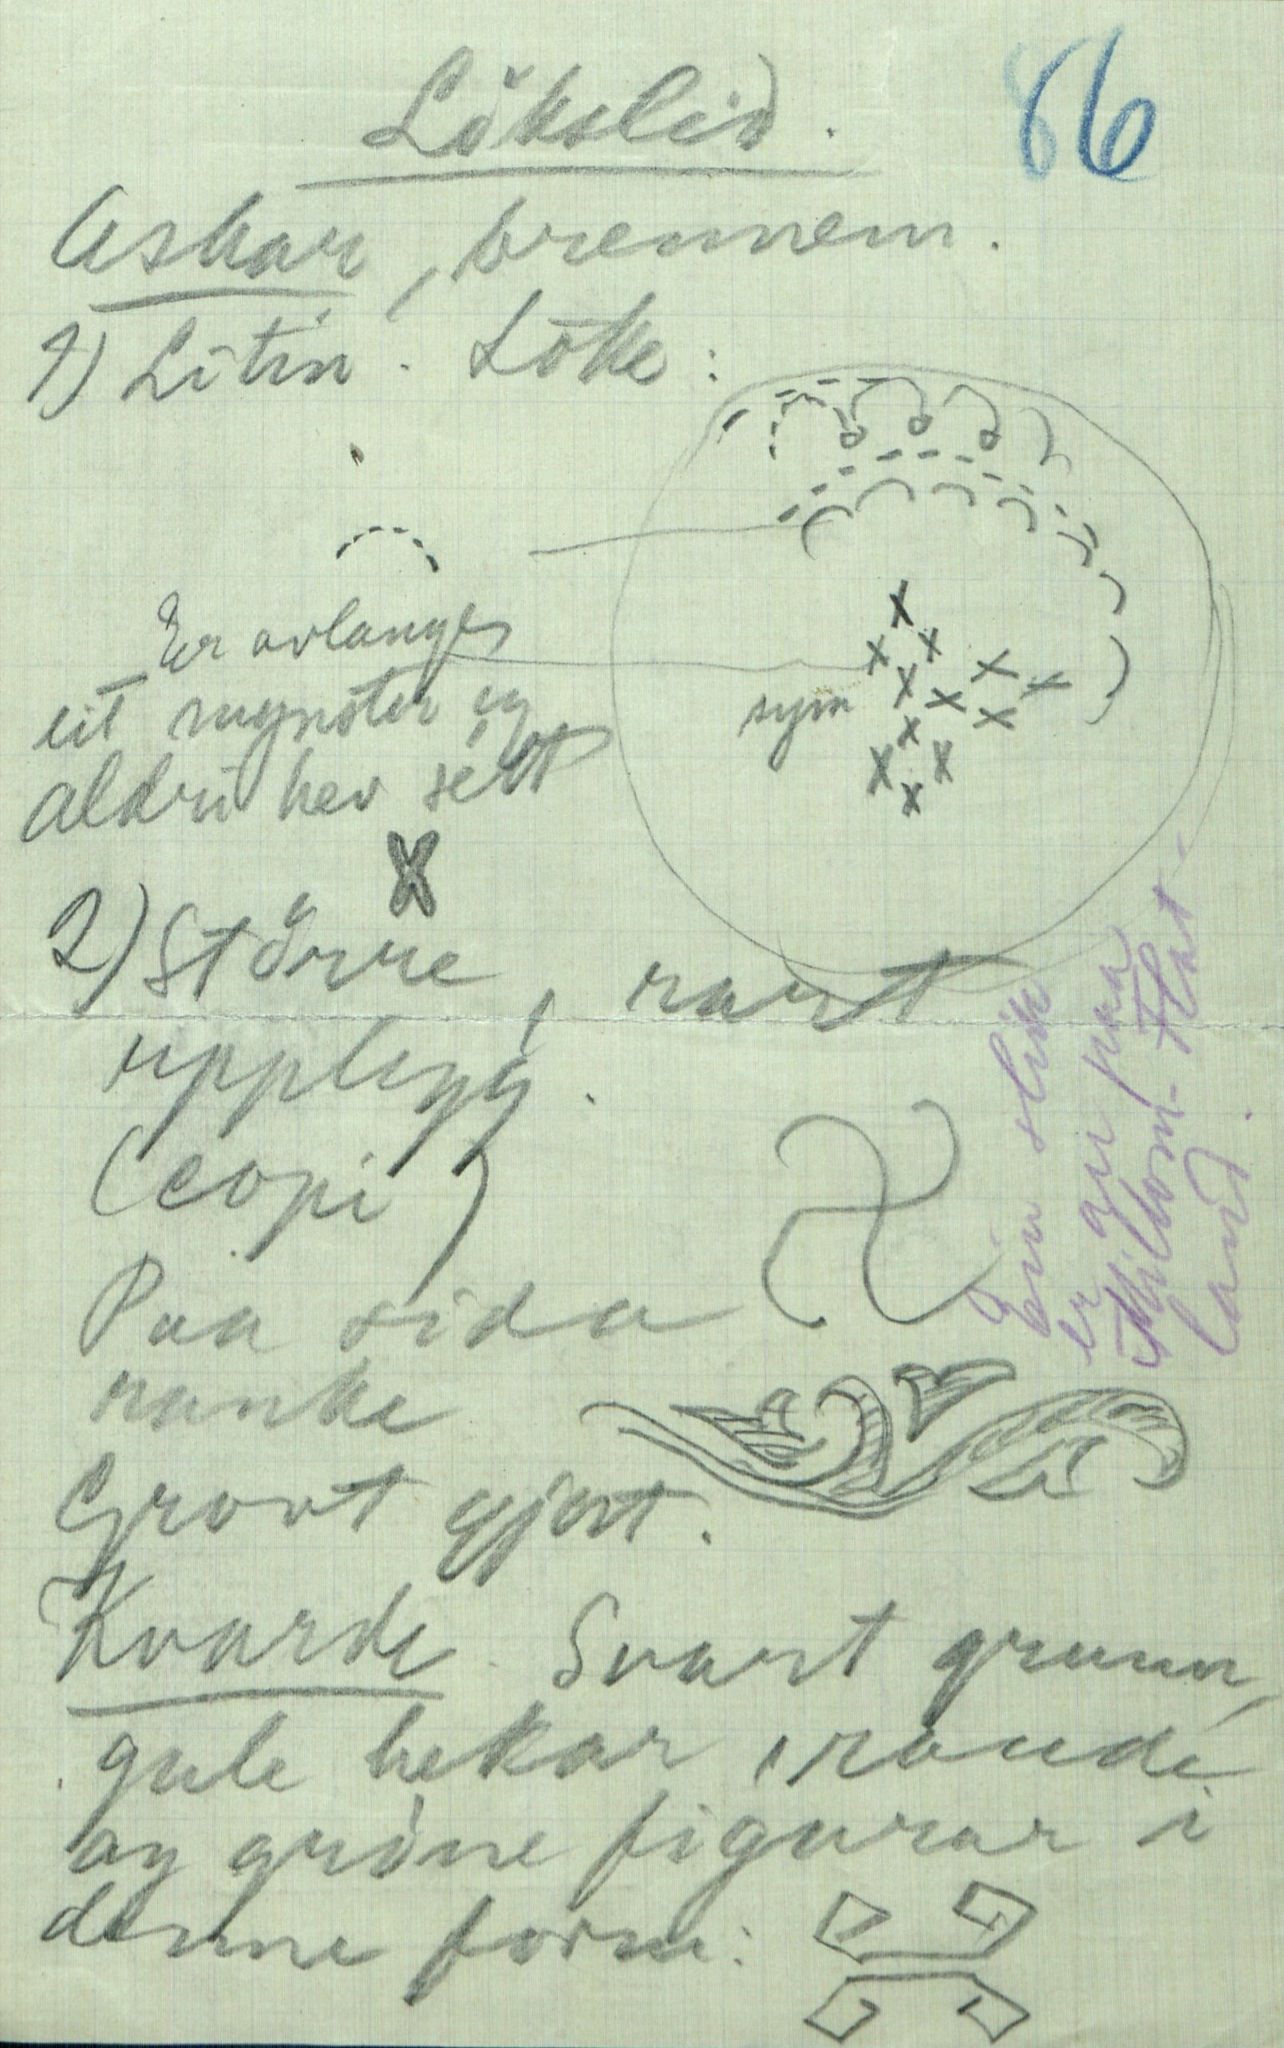 Lökslid.
86
Askar, brennem.
1) Litin. Löke:
Er avlanges
eit mynster eg
aldri hev sétt
sym
X
2) Större, rart
upplegg.
(copi)
Paa sida
ranke
Grovt gjort.
Kvarde. Svart grunn,
gule bekar, raude
og gröne figurar i
denne form:
Ein slik
er gir paa
Millom-Flat-
land.